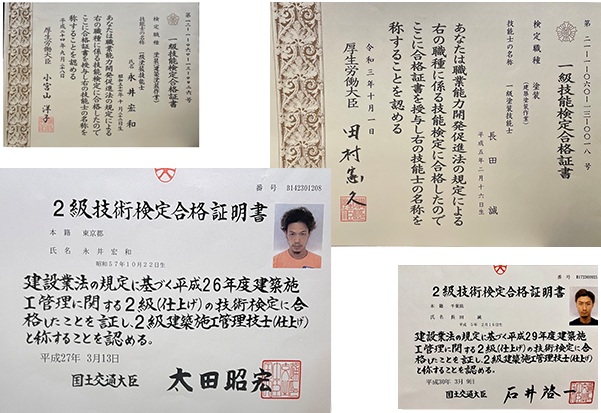 一級技能検定合格証書
検定職種 塗装(建築塗装作業)
技能士の名称 一級塗装技能士
氏名 永井宏和
あなたは職業能力開発促進法の規定による
右の職種に係る技能検定に合格したので
ここに合格証書を授与し右の技能士の名称を
称することを認める
厚生労働大臣 小宮山洋子
一級技能検定合格証書
検定職種 塗装
(建築塗装作業)
技能士の名称 一級塗装技能士
長田 誠
平成五年二月十六日生
あなたは職業能力開発促進法の規定による
右の職種に係る技能検定に合格したので
ここに合格証書を授与し右の技能士の名称を
称することを認める
令和三年十月一日
厚生労働大臣 田村憲久
番号 B142301208
2級技術検定合格証明書
本籍 東京都
氏名 永井宏和
昭和57年10月22日生
建設業法の規定に基づく平成26年度建築施
工管理に関する2級(仕上げ)の技術検定に合
格したことを証し、2級建築施工管理技士(仕上げ)
と称することを認める。
平成27年 3月13日
国土交通大臣 太田昭宏
番号
2級技術検定合格証明書
本籍 千葉県
氏名 長田 誠
平成 5年 2月16日生
建設業法の規定に基づく平成29年度建築施
工管理に関する2級(仕上げ)の技術検定に合
格したことを証し、2級建築施工管理技士(仕上げ)
と称することを認める。
平成30年 3月 9日
国土交通大臣 石井啓一